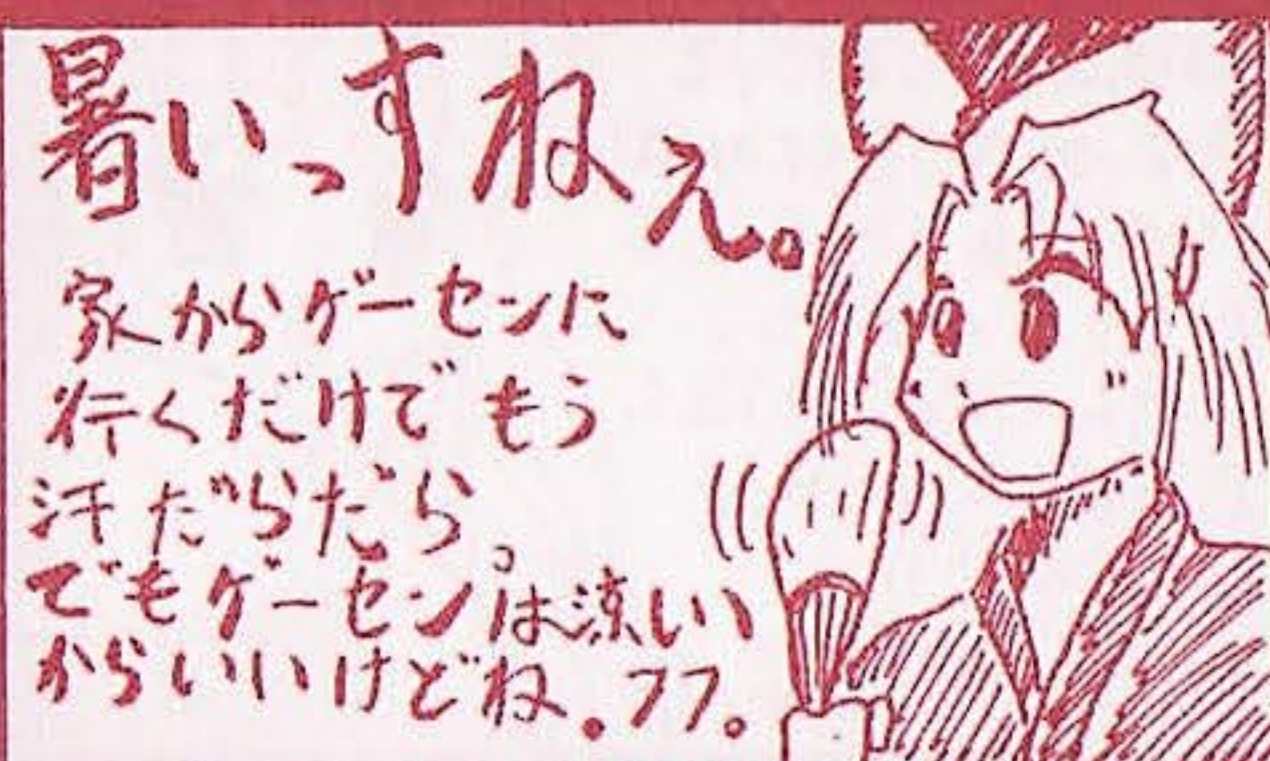 暑いっすねぇ。
家からゲーセンに
行くだけでもう
汗だらだら。
でもゲーセンは涼しい
からいいけどね。フフ。